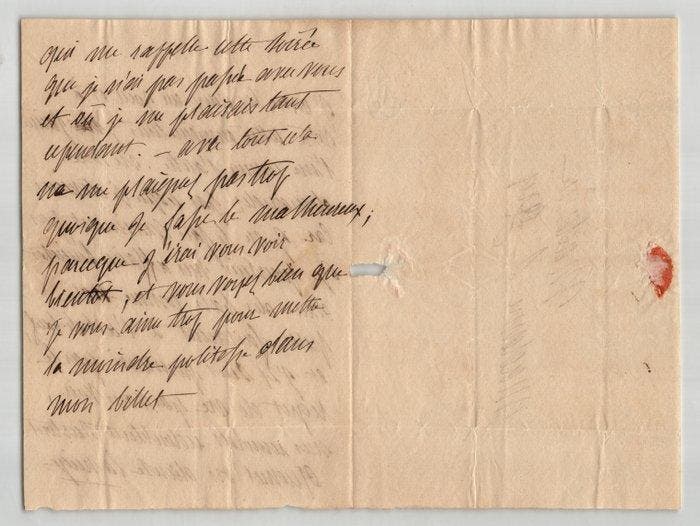 qui me rappelle cette soirée
que je n'ai pas passée avec vous
et où je me plaisais tant
cependant. — avec tout cela
ne me plaignez pas trop
quoique je fasse le malheureux;
parceque j'irai vous voir
bientôt, et vous voyez bien que
je vous aime trop pour mettre
la moindre politesse dans
mon billet